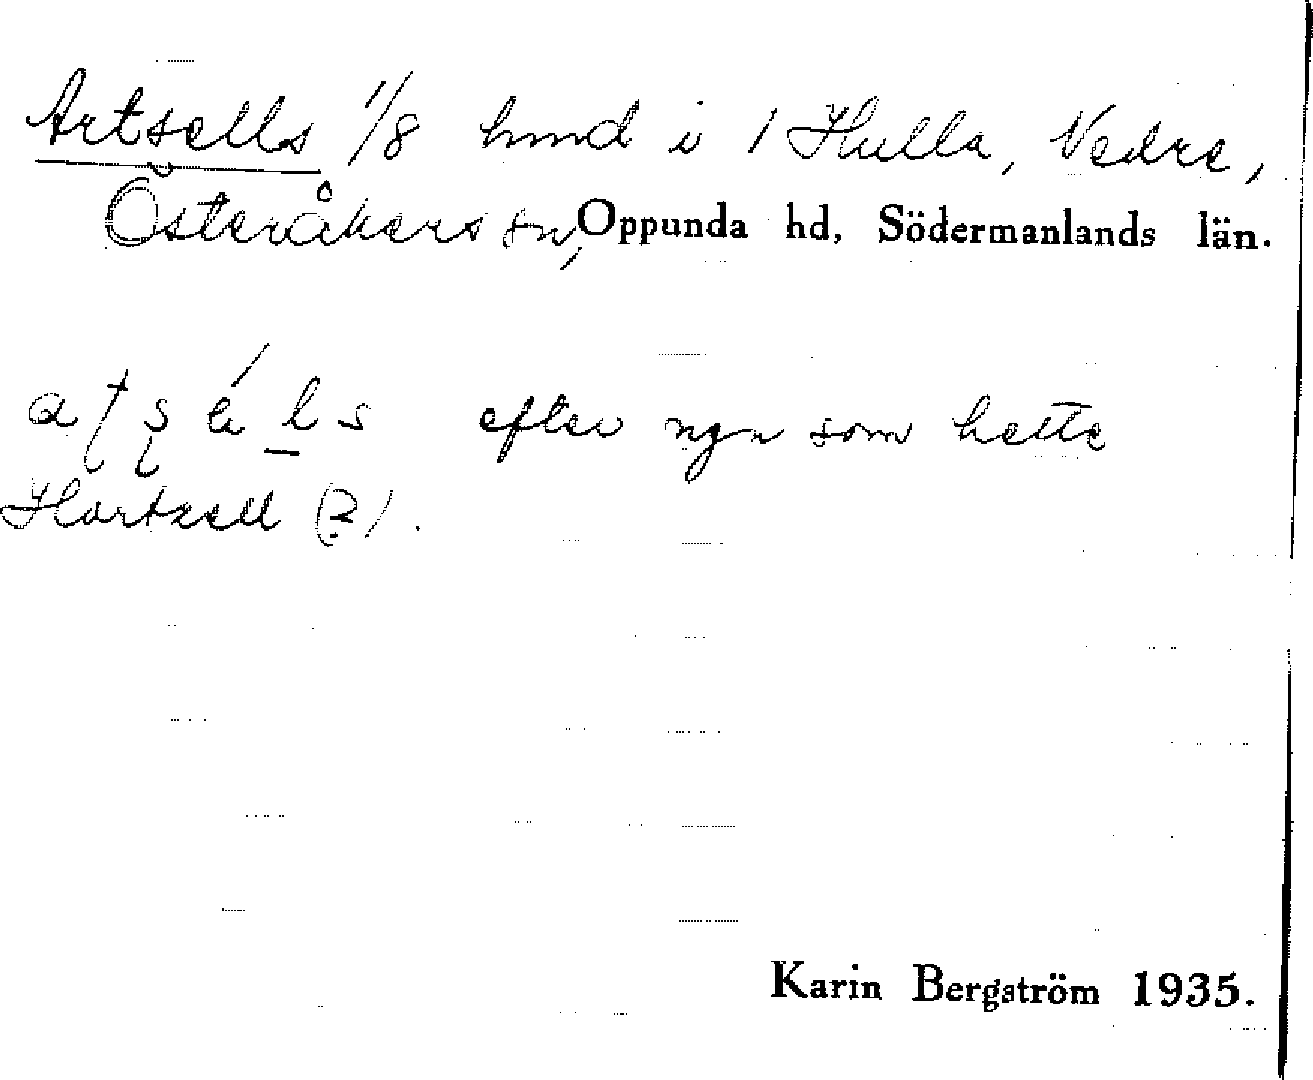 Artsells 1/8 hmd i 1 Hulla, Nedre,
Österåkers sn, Oppunda hd, Södermanlands län.
efter ngn som hette
Hartzell (?).
Karin Bergström 1935.